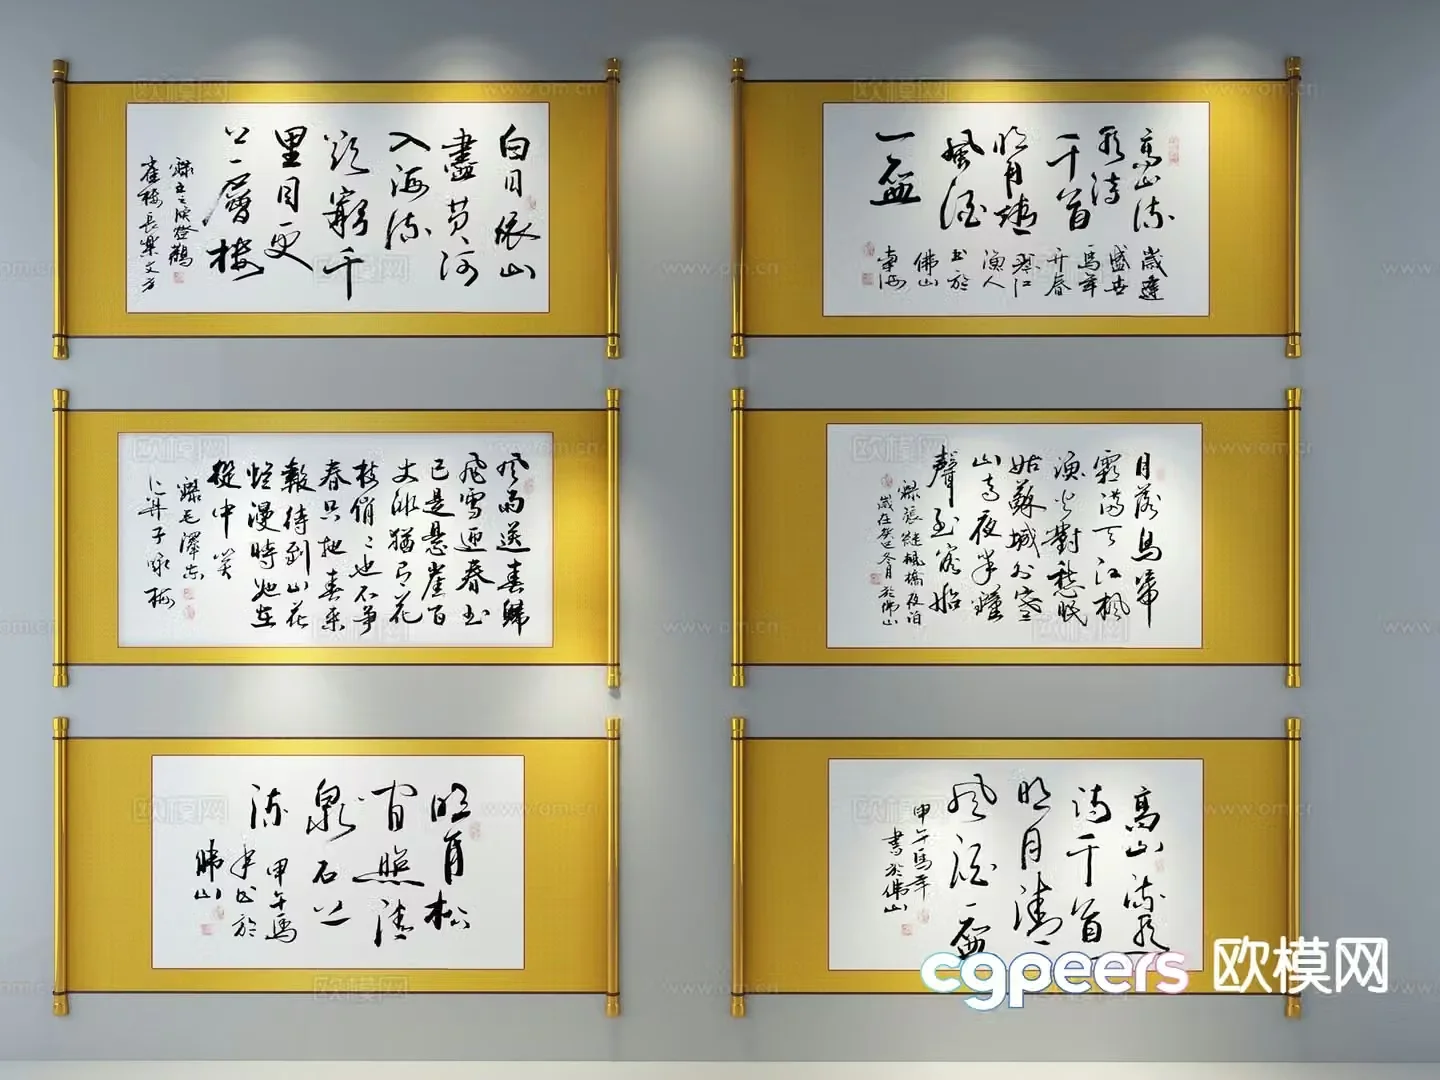 白日依山
盡黄河
入海流
欲窮千
里目更
上一層樓
錄王之渙登鸛
雀樓長樂文方
高山流
水詩
千首
明月清
風酒
一盃
歲逢
盛世
馬年
开春
漁人
书於
佛山
南海
风雨送春歸
飛雪迎春到
已是悬崖百
丈冰猶有花
枝俏俏也不争
春只把春来
報待到山花
烂漫時她在
丛中笑
錄毛澤东
卜算子咏梅
月落烏啼
霜满天江枫
漁火對愁眠
姑蘇城外寒
山寺夜半鐘
聲到客船
錄張継楓橋夜泊
歲在癸巳冬月於佛山
明月松
间照清
泉石上
流
甲午馬
年书於
佛山
高山流水
詩千首
明月清
风酒一盃
甲午馬年
書於佛山
cgpeers 欧模网
欧模网
www.om.cn